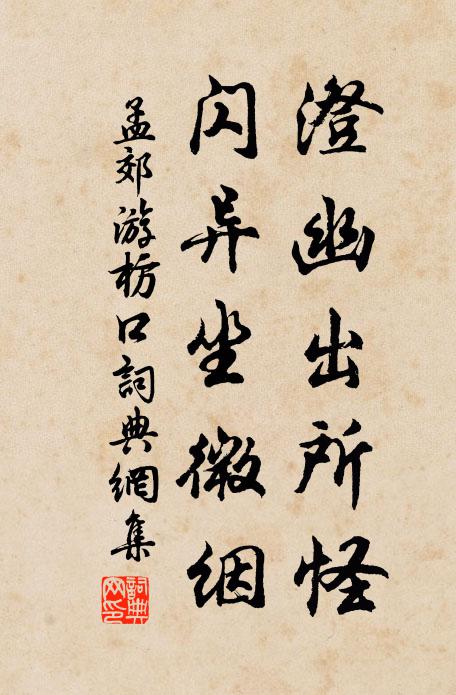 澄幽出所怪
闪异坐微絪
孟郊游枋口詞典網集
詞典网印